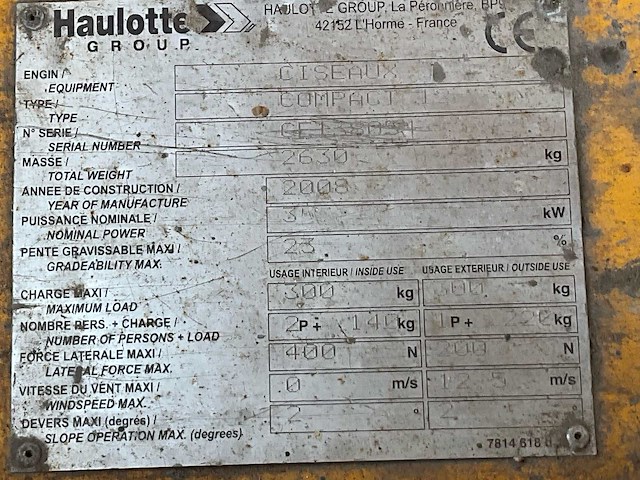 Haulotte
GROUP
HAULOTTE GROUP, La Péronnière, BP9
42152 L'Horme - France
CE
ENGIN / EQUIPMENT CISEAUX
TYPE / TYPE COMPACT
N° SERIE / SERIAL NUMBER
MASSE / TOTAL WEIGHT 2630 kg
ANNEE DE CONSTRUCTION / YEAR OF MANUFACTURE 2008
PUISSANCE NOMINALE / NOMINAL POWER kW
PENTE GRAVISSABLE MAXI / GRADEABILITY MAX. 23 %
USAGE INTERIEUR / INSIDE USE USAGE EXTERIEUR / OUTSIDE USE
CHARGE MAXI / MAXIMUM LOAD 300 kg 300 kg
NOMBRE PERS. + CHARGE / NUMBER OF PERSONS + LOAD 2 P + 140 kg 1 P + kg
FORCE LATERALE MAXI / LATERAL FORCE MAX. 400 N N
VITESSE DU VENT MAXI / WINDSPEED MAX. 0 m/s 12.5 m/s
DEVERS MAXI (degrés) / SLOPE OPERATION MAX. (degrees) 2 ° 2 °
7814 618